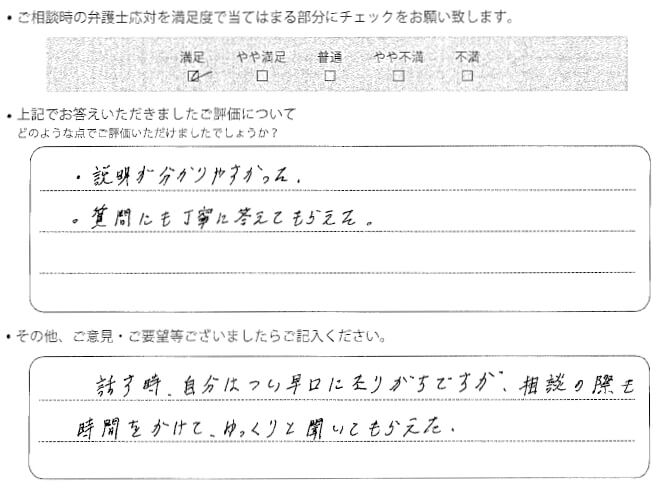 ・ご相談時の弁護士応対を満足度で当てはまる部分にチェックをお願い致します。
満足 やや満足 普通 やや不満 不満
☑ ☐ ☐ ☐ ☐
・上記でお答えいただきましたご評価について
どのような点でご評価いただけましたでしょうか？
・説明が分かりやすかった.
。質問にも丁寧に答えてもらえた。
・その他、ご意見・ご要望等ございましたらご記入ください。
話す時、自分はつい早口になりがちですが、相談の際も
時間をかけて、ゆっくりと聞いてもらえた.